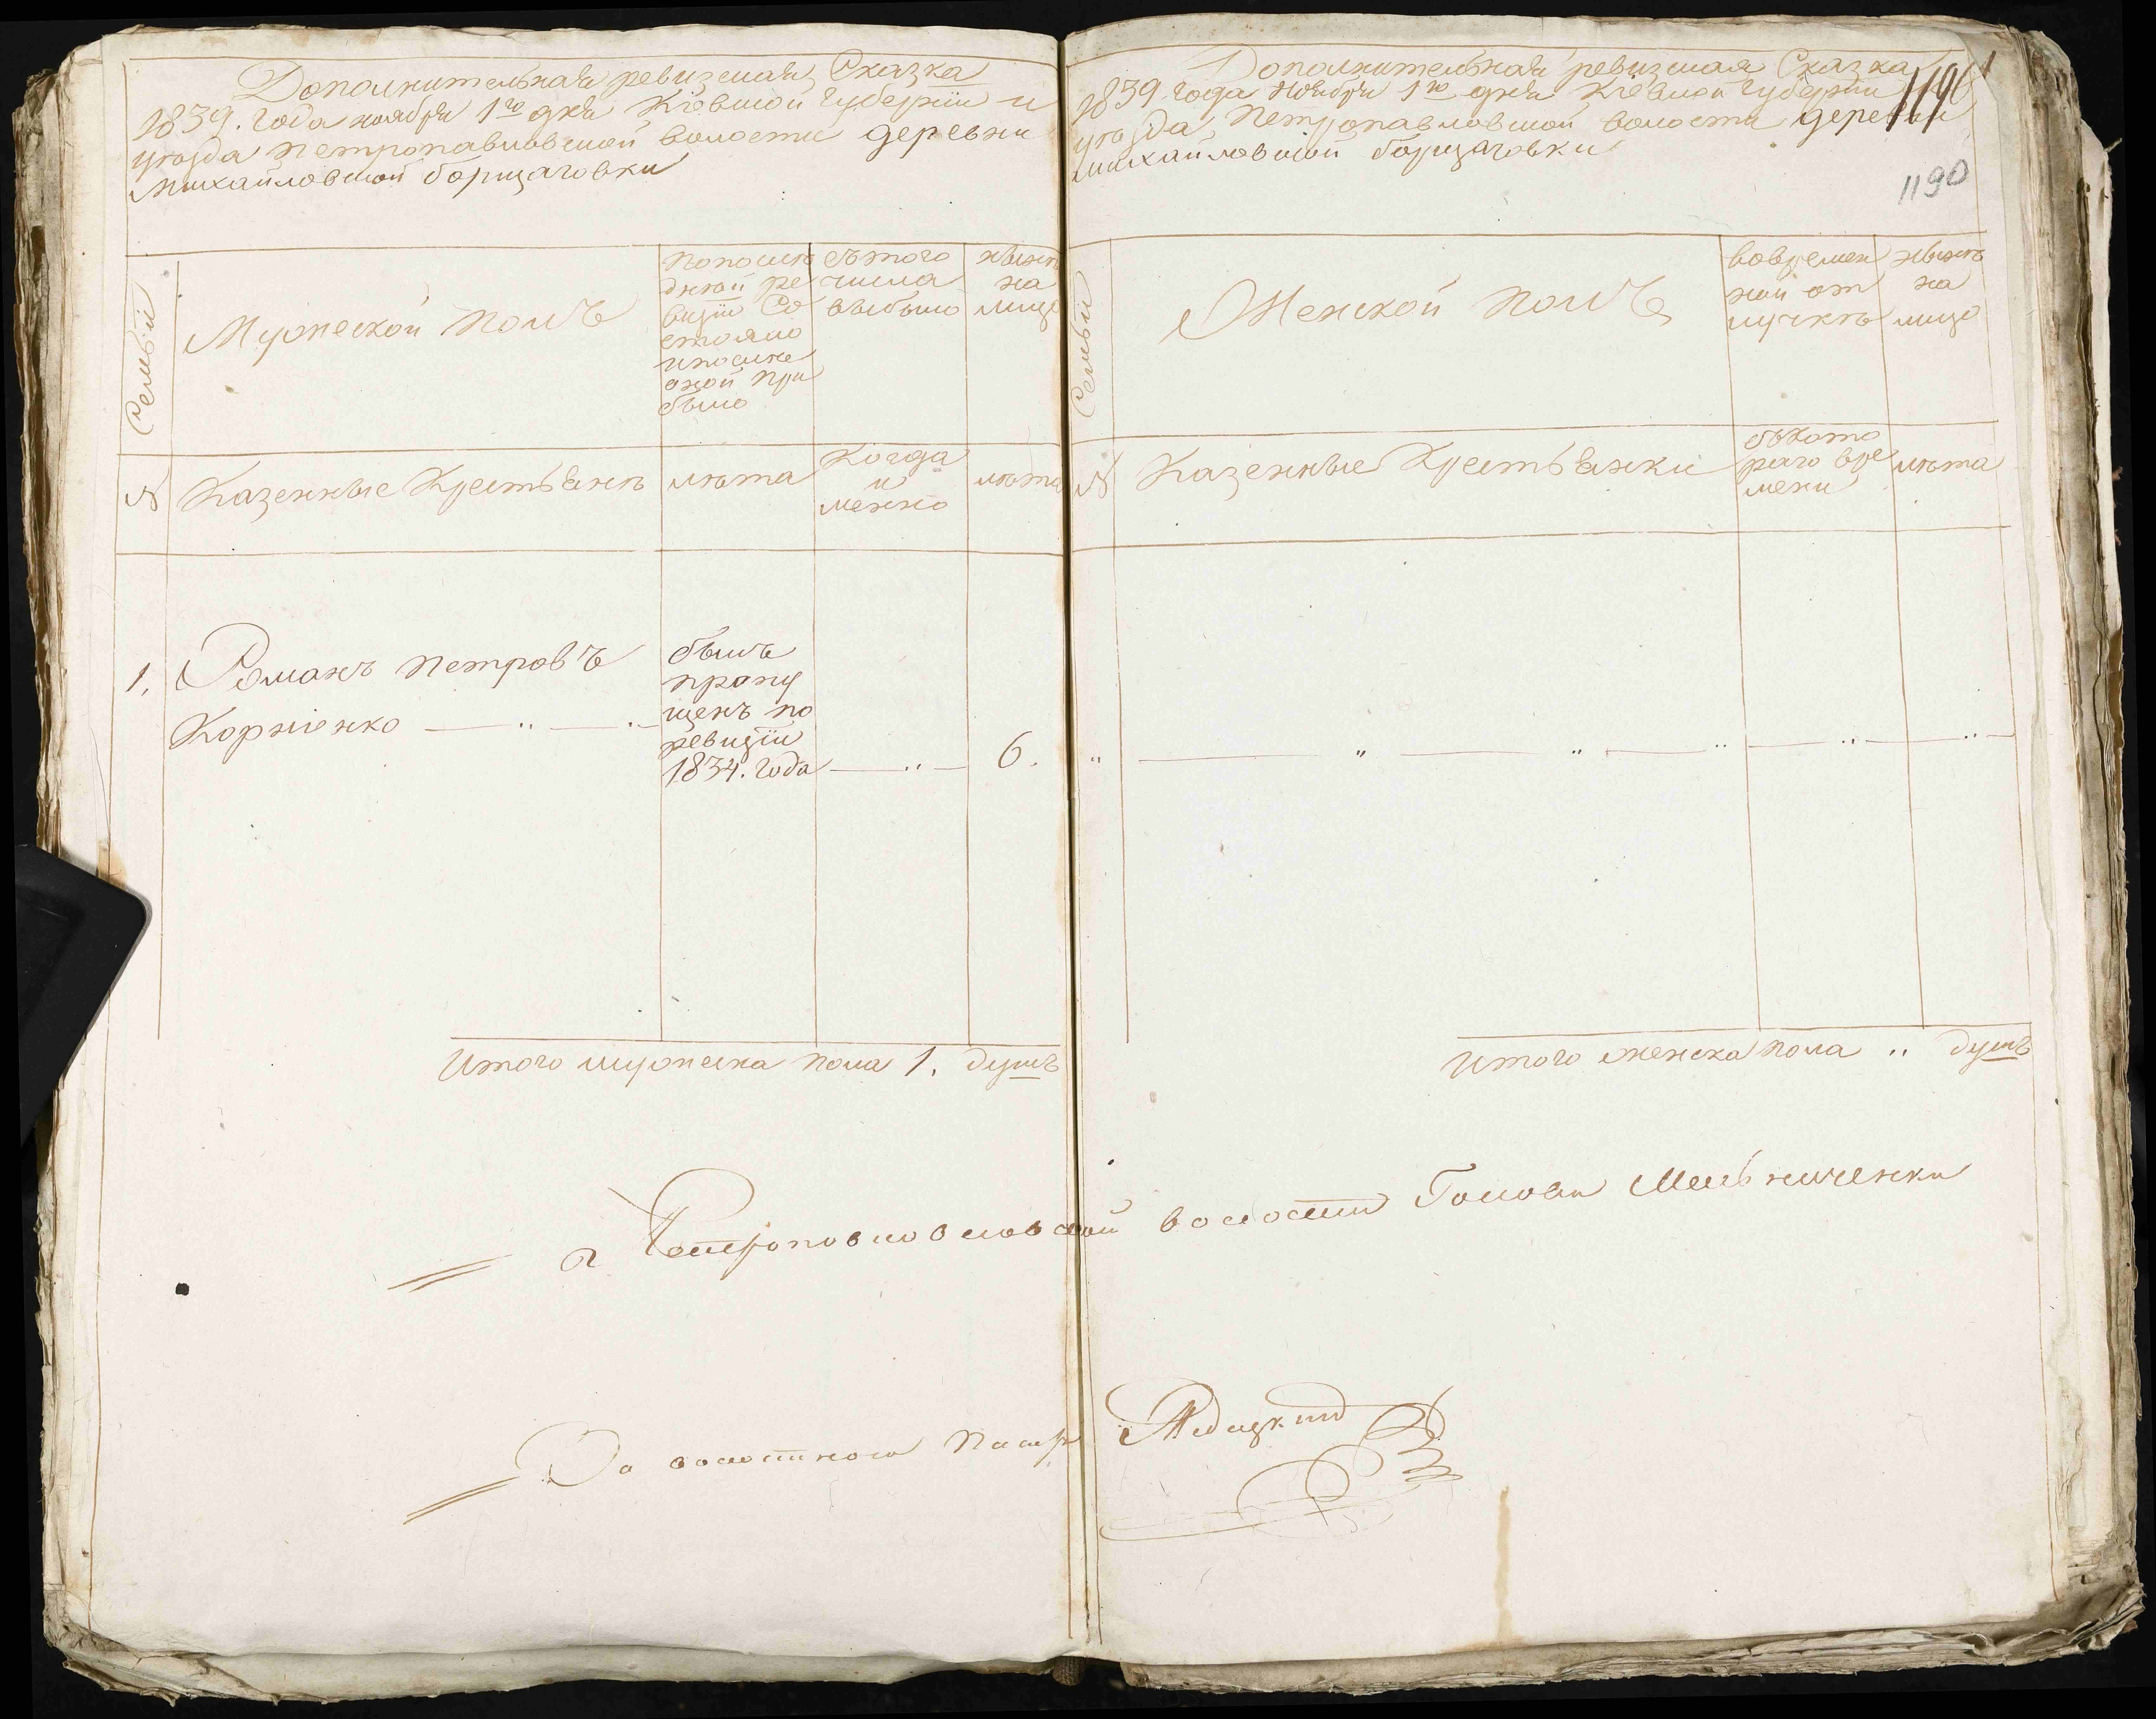 Дополнительная ревизская Сказка
1839. года ноября 1го дня Кіевской губерніи и
уѣзда петропавловской волости деревни
михайловской борщаговки
Семьи
Мужеской полъ
Попослѣ
дней ре
визіи Со
стояло
ипосле
оной при
было
сътого
числа
выбыло
нынѣ
на
лицо
№
Казенные Крестьянѣ
лѣта
Когда
и
менно
лѣта
1.
Романъ петровъ
Корніенко — „ — „ —
былъ
пропу
щенъ по
ревизіи
1834. года — „ —
6.
Итого мужеска пола 1. душъ
Дополнительная ревизская Сказка
1839. года ноября 1го дня Кіевской губерніи и
уѣзда, Петропавловской волости деревни
михайловской борщаговки
1190
1190
Семьи
Женской полъ
вовремен
ной от
лучкѣ
нынѣ
на
лицо
№
Казенные Крестьянки
съкото
раго вре
мени
лѣта
„ — „ — „ — „ — „ — „ —
Итого женска пола „ душъ
Петроповловской волости Головы Мельниченки
За волостного Писаря